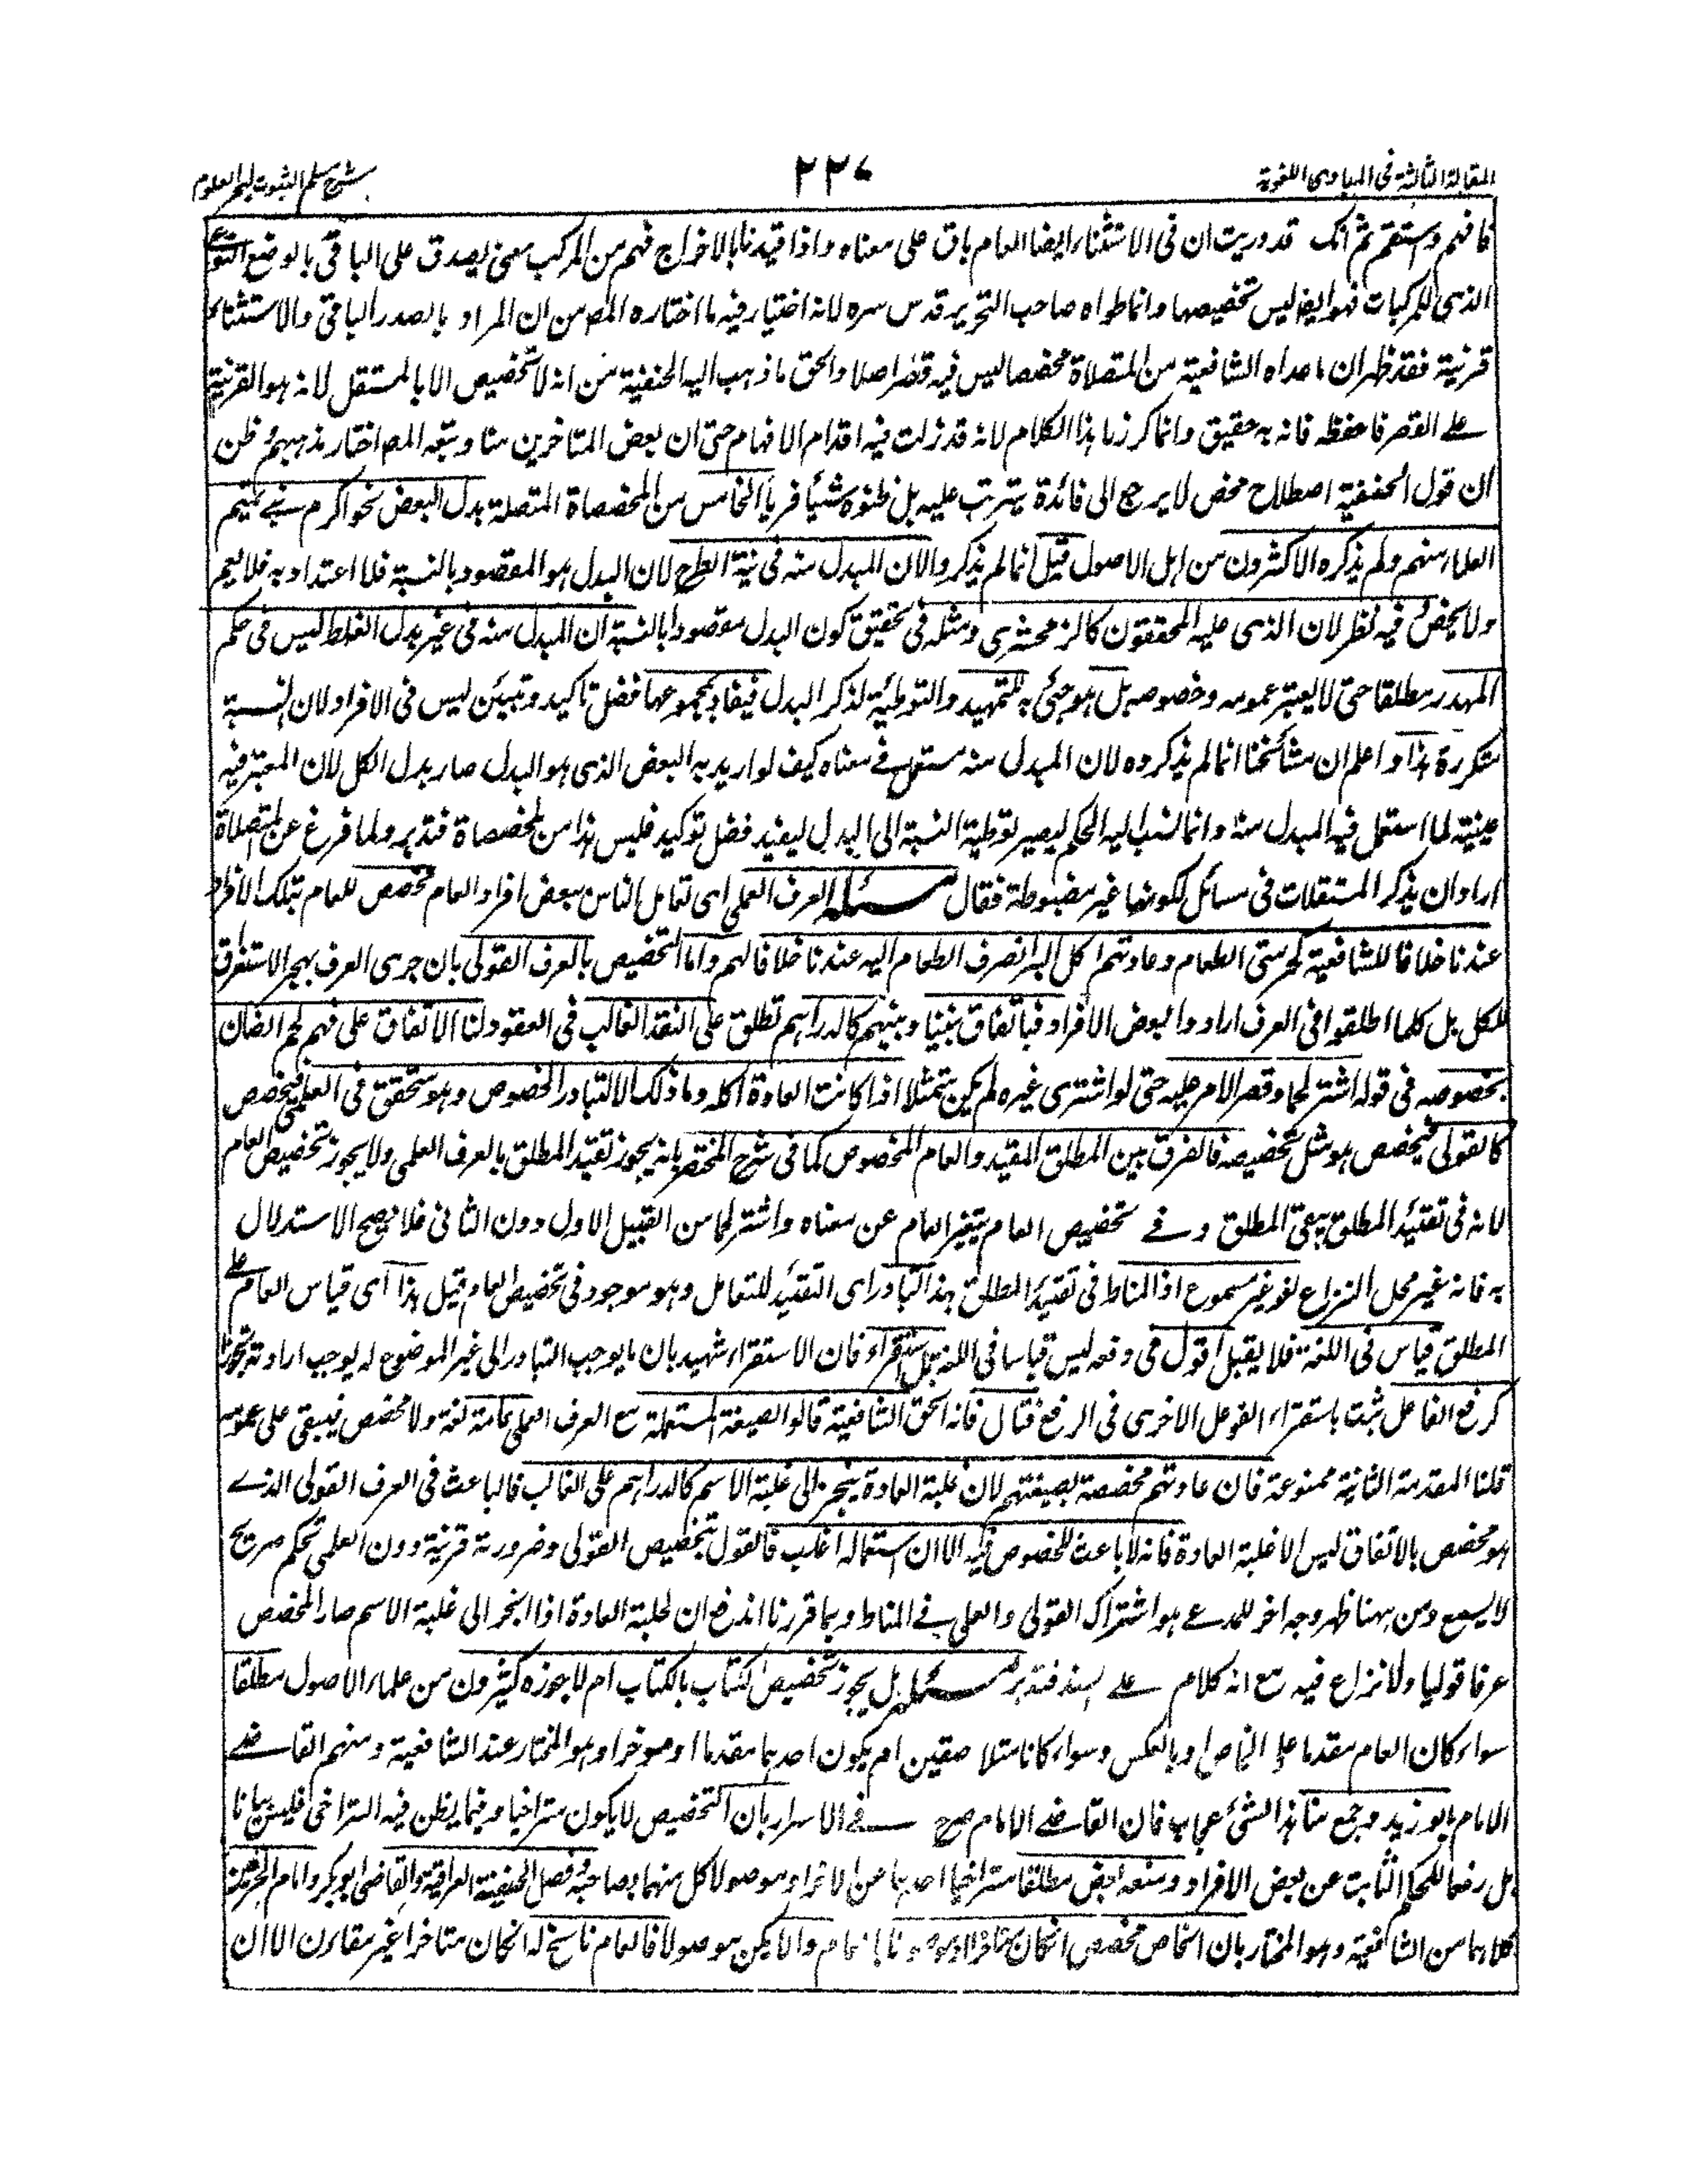 المقالة الثالثة في المبادي اللغوية
٢٢٧
شرح مسلم الثبوت لبحر العلوم
فافهم واستقم ثم انك قد دريت ان في الاستثناء ايضا العام باق على معناه واذا قيدنا بالاخراج فهم من المركب معنى يصدق على الباقي بالوضع النوعي
الذي للمركبات فهو ايضا ليس تخصيصا وانما طواه صاحب التحرير قدس سره لانه اختار فيه ما اختاره المصـ من ان المراد بالصدر الباقي والاستثناء
قرينة فقد ظهر ان ما عداه الشافعية من المتصلاة مخصصا ليس فيه قصر اصلا والحق ما ذهب اليه الحنفية من انه لا تخصيص الا بالمستقل لانه هو القرينة
على القصر فاحفظه فانه به حقيق وانما كررنا هذا الكلام لانه قد زلت فيه اقدام الافهام حتى ان بعض المتاخرين منا وتبعه المصـ اختار مذهبهم وظن
ان قول الحنفية اصطلاح محض لا يرجع الى فائدة يترتب عليه بل ظنوه شيئا فريا الخامس من المخصصاة المتصلة بدل البعض نحو اكرم بني تميم
العلماء منهم ولم يذكره الاكثرون من اهل الاصول قيل انما لم يذكروا لان المبدل منه في نية الطرح لان البدل هو المقصود بالنسبة فلا اعتداد به فلا يعم
ولا يخص وفيه نظر لان الذي عليه المحققون كالزمخشري ومثله في تحقيق كون البدل مقصودا بالنسبة ان المبدل منه في غير بدل الغلط ليس في حكم
المهدر مطلقا حتى لا يعتبر عمومه وخصوصه بل هو جئ به للتمهيد والتوطية لذكر البدل فيفاد بمجموعهما فضل تاكيد وتبيين ليس في الافراد لان النسبة
متكررة هذا واعلم ان مشائخنا انما لم يذكروه لان المبدل منه مستعمل في معناه كيف لو اريد به البعض الذي هو البدل صار بدل الكل لان المعتبر فيه
عينية لما استعمل فيه المبدل منه وانما نسب اليه الحكم ليصير توطية النسبة الى البدل ليفيد فضل توكيد فليس هذا من المخصصاة فتدبر ولما فرغ عن المتصلاة
اراد ان يذكر المستقلات في مسائل لكونها غير مضبوطة فقال مسئلة العرف العملي اي تعامل الناس ببعض افراد العام مخصص للعام بتلك الافراد
عندنا خلافا للشافعية كحرمت الطعام وعادتهم اكل البر انصرف الطعام اليه عندنا خلافا لهم واما التخصيص بالعرف القولي بان جرى العرف بهجر الاستغراق
للكل بل كلما اطلقوا في العرف ارادوا البعض الافراد فباتفاق بيننا وبينهم كالدراهم تطلق على النقد الغالب في العقود لنا الاتفاق على فهم لحم الضان
بخصوصه في قوله اشتر لحما وقصر الامر عليه حتى لو اشترى غيره لم يكن ممتثلا اذا كانت العادة اكله وما ذلك الا لتبادر الخصوص وهو متحقق في العملي فيخصص
كالقولي فيخصص هو مثل تخصيصه فالفرق بين المطلق المقيد والعام المخصوص كما في شرح المختصر بانه يجوز تقييد المطلق بالعرف العملي ولا يجوز تخصيص العام
لانه في تقييد المطلق يبقى المطلق وفي تخصيص العام يتغير العام عن معناه واشتر لحما من القبيل الاول دون الثاني فلا يصح الاستدلال
به فانه غير محل النزاع لغو غير مسموع اذ المناط في تقييد المطلق بهذا التبادر اي التقييد للتعامل وهو موجود في تخصيص العام قيل هذا اي قياس العام على
المطلق قياس في اللغة فلا يقبل اقول في دفعه ليس قياسا في اللغة بل استقراء فان الاستقراء شهيد بان ما يوجب التبادر الى غير الموضوع له يوجب ارادته تجوزا
كرفع الفاعل ثبت باستقراء الفوعل الاخرى في الرفع فتأمل فانه الحق الشافعية قالوا الصيغة المستعملة مع العرف العملي عامة لغة ولا مخصص فيبقى على عمومه
قلنا المقدمة الثانية ممنوعة فان عادتهم مخصصة بصيغتهم لان غلبة العادة ينجر الى غلبة الاسم كالدراهم على الغالب فالباعث في العرف القولي الذي
هو مخصص بالاتفاق ليس الا غلبة العادة فانه لا باعث للخصوص فيه الا ان استعماله اغلب فالقول بتخصيص القولي وضرورته قرينة دون العملي تحكم صريح
لا يسمع ومن ههنا ظهر وجه اخر للمدعى هو اشتراك القولي والعملي في المناط وبما قررنا اندفع ان لغلبة العادة اذا انجر الى غلبة الاسم صار المخصص
عرفا قوليا ولا نزاع فيه مع انه كلام على السند فتدبر مسئلة هل يجوز تخصيص الكتاب بالكتاب ام لا جوزه كثيرون من علماء الاصول مطلقا
سواء كان العام مقدما على الخاص او بالعكس وسواء كانا متلاصقين ام يكون احدهما مقدما او موخرا وهو المختار عند الشافعية ومنهم القاضي
الامام ابو زيد وجمع منا هذا الشئ عجاب فان القاضي الامام صرح في الاسرار بان التخصيص لا يكون متراخيا وفيما يظن فيه التراخي فليس بيانا
بل رفعا للحكم الثابت عن بعض الافراد ومنعه بعض مطلقا متراخيا احدهما عن الاخر او موصولا كل منهما بصاحبه وفصل الحنفية العراقية والقاضي ابو بكر وامام الحرمين
كلاهما من الشافعية وهو المختار بان الخاص مخصص انكان متاخرا وموصولا بالعام والا يكن موصولا فالعام ناسخ له انكان متاخرا غير مقارن الا ان